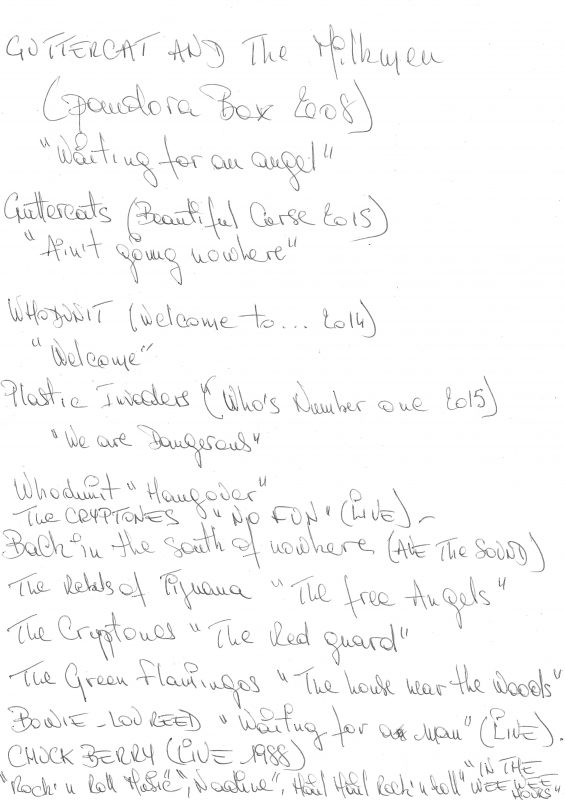 GUTTERCAT AND The Milkmen
(pandora Box 2008)
"Waiting for an angel"
Guttercats (Beautiful Curse 2015)
"Ain't going nowhere"
WHODUNIT (Welcome to... 2014)
"Welcome"
Plastic Invaders (Who's Number one 2015)
"We are Dangerous"
Whodunit "Hangover"
The CRYPTONES "NO FUN" (LiVE) -
Back in the south of nowhere (The SOUND)
The Rebels of Tijuana "The free Angels"
The Cryptones "The Red guard"
The Green Flamingos "The house near the woods"
BOWIE - LOU REED "Waiting for a Man" (LiVE).
CHUCK BERRY (LiVE 1988)
"Rock'n Roll Music", "Nadine", Hail Hail Rock'n roll" "IN THE
WEE WEE
HOURS"